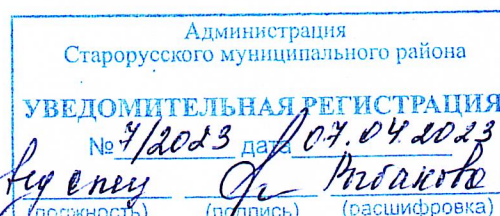 Администрация
Старорусского муниципального района
УВЕДОМИТЕЛЬНАЯ РЕГИСТРАЦИЯ
№ 7/2023 дата 07.04.2023
вед спец Рыбакова
(должность) (подпись) (расшифровка)